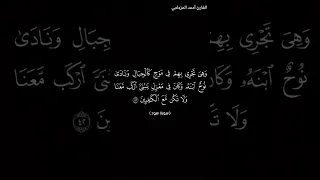 القارئ أحمد العزماسي
وَهِيَ تَجْرِي بِهِمْ فِي مَوْجٍ كَالْجِبَالِ وَنَادَىٰ
نُوحٌ ابْنَهُ وَكَانَ فِي مَعْزِلٍ يَبُنَيَّ ارْكَب مَّعَنَا
وَلَا تَكُن مَّعَ الْكَافِرِينَ ٤٢
(سورة هود)